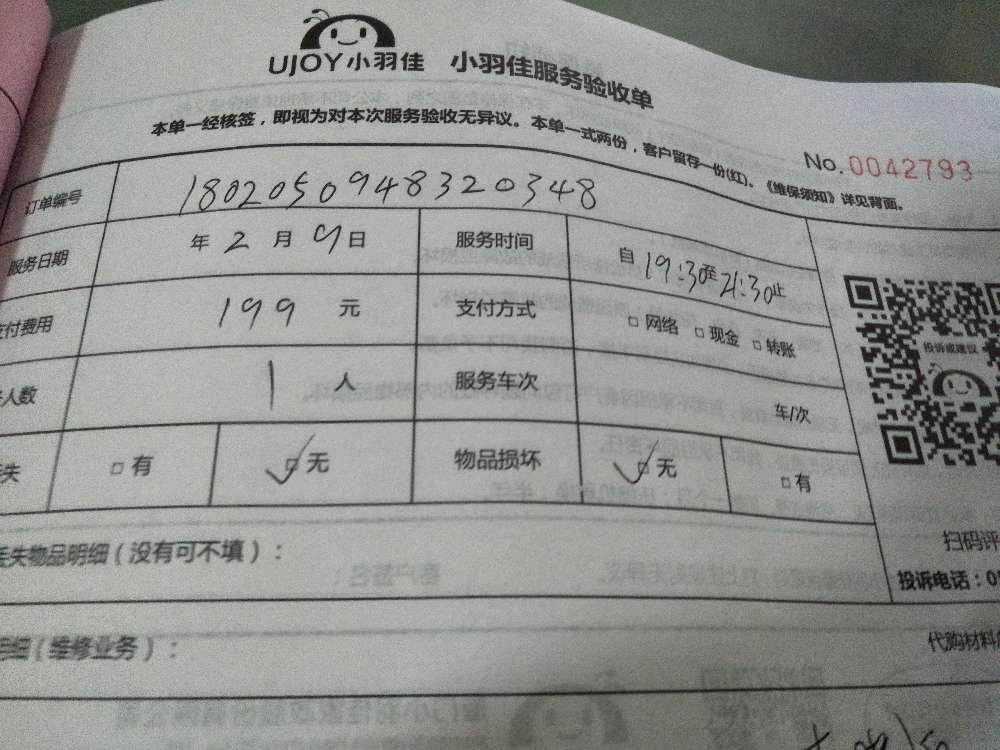 UJOY小羽佳 小羽佳服务验收单
本单一经核签，即视为对本次服务验收无异议。本单一式两份，客户留存一份(红)。《维保须知》详见背面。
No.0042793
订单编号 180205094832​0348
服务日期 年 2 月 9 日 服务时间 自 19:30至 21:30止
支付费用 199 元 支付方式 □ 网络 □ 现金 □ 转账
人数 1 人 服务车次 车/次
失 □ 有 ☑ 无 物品损坏 ☑ 无 □ 有
投诉或建议
丢失物品明细（没有可不填）：
扫码评
投诉电话：0
明细（维修业务）：
代购材料